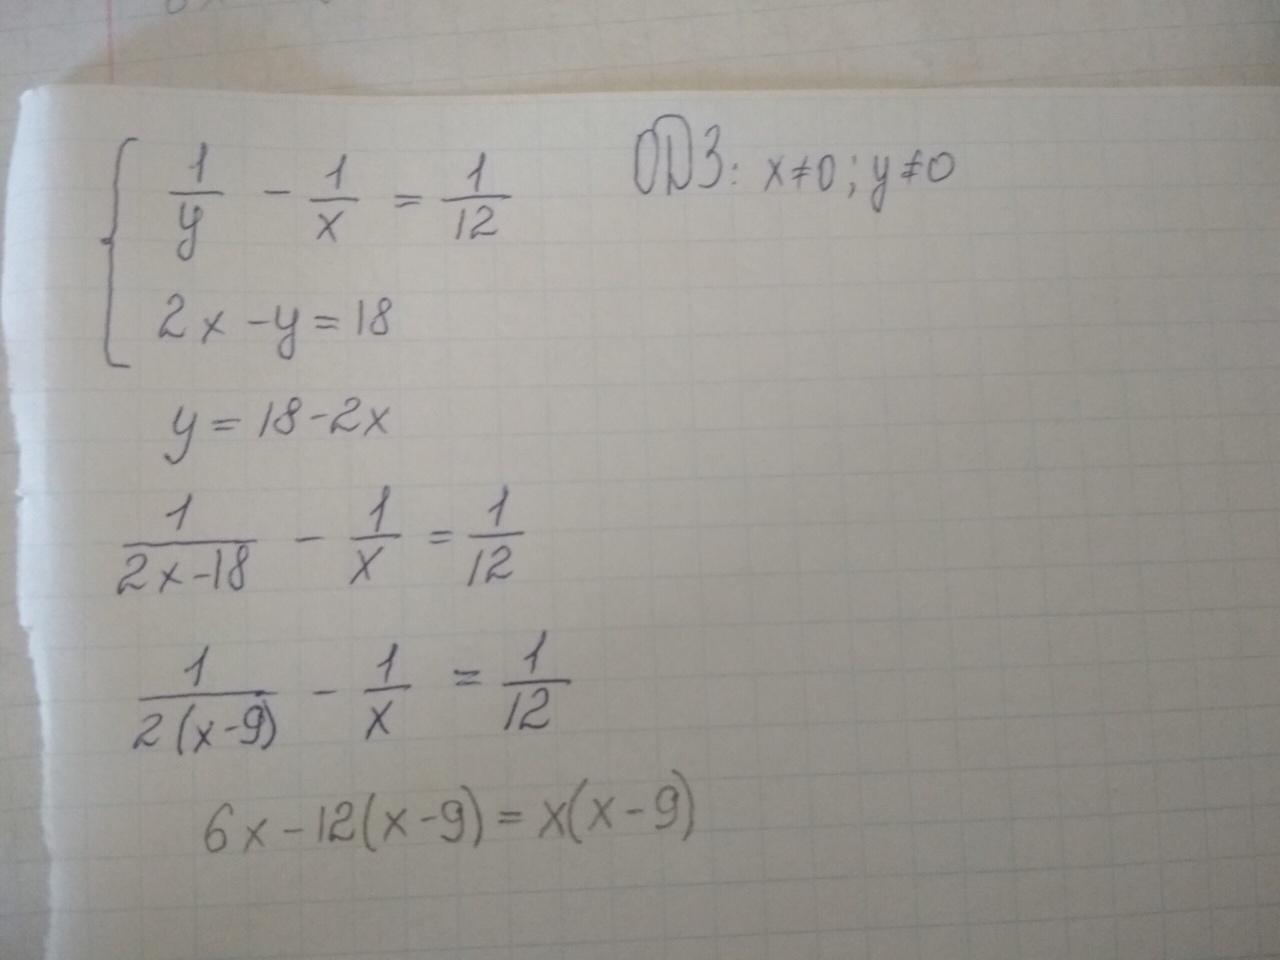 1/y - 1/x = 1/12 ОДЗ: x≠0; y≠0
2x-y=18
y=18-2x
1/(2x-18) - 1/x = 1/12
1/(2(x-9)) - 1/x = 1/12
6x-12(x-9)=x(x-9)